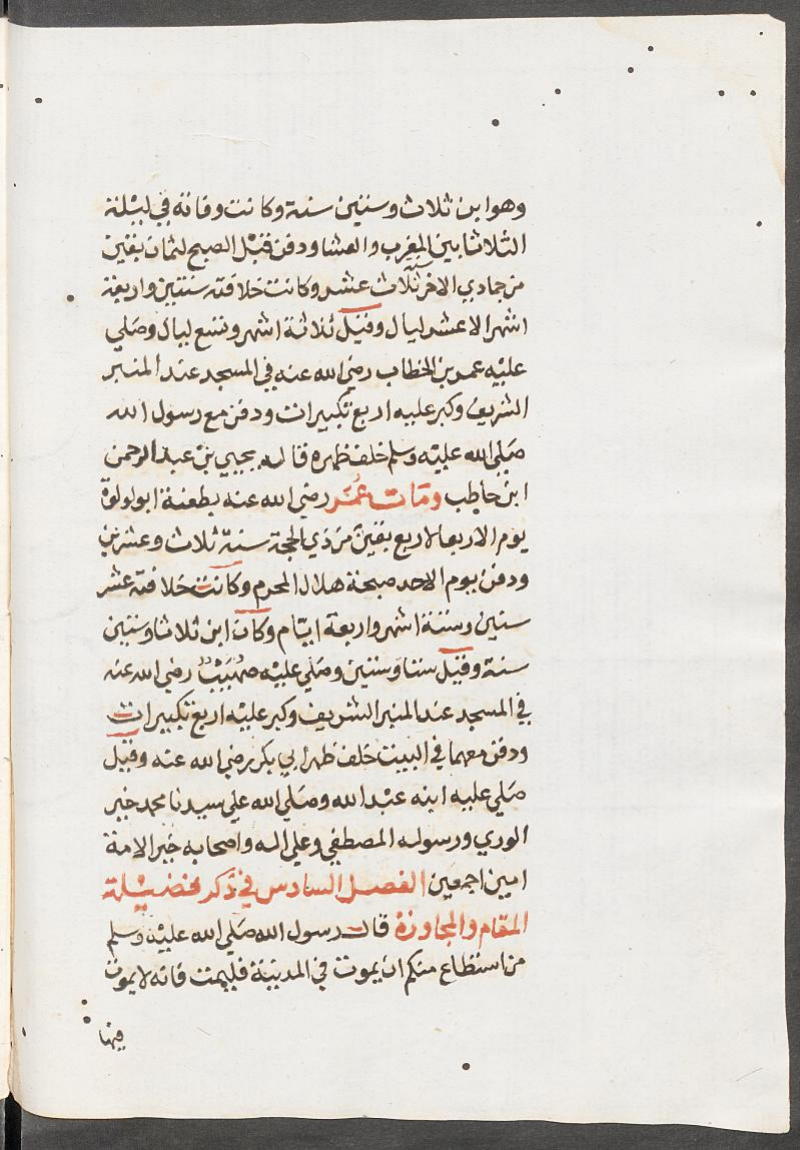 وهو ابن ثلاث وستين سنة وكانت وفاته في ليلة
الثلاثا بين المغرب والعشا ودفن قبل الصبح لثمان بقين
من جمادي الاخر سنة ثلاث عشر وكانت خلافته سنتين واربعة
اشهر الا عشر ليال وقيل ثلاثة اشهر وتسع ليال وصلي
عليه عمر بن الخطاب رضي الله عنه في المسجد عند المنبر
الشريف وكبر عليه اربع تكبيرات ودفن مع رسول الله
صلي الله عليه وسلم خلف ظهره قاله يحيي بن عبد الرحمن
ابن حاطب ومات عمر رضي الله عنه بطعنة ابو لولوة
يوم الاربعا لاربع بقين من ذي الحجة سنة ثلاث وعشرين
ودفن يوم الاحد صبحة هلال المحرم وكانت خلافته عشر
سنين وستة اشهر واربعة ايام وكان ابن ثلاثا وستين
سنة وقيل ستا وستين وصلي عليه صهيب رضي الله عنه
في المسجد عند المنبر الشريف وكبر عليه اربع تكبيرات
ودفن معهما في البيت خلف ظهر ابي بكر رضي الله عنه وقيل
صلي عليه ابنه عبد الله وصلي الله علي سيدنا محمد خير
الوري ورسوله المصطفي وعلي اله واصحابه خير الامة
امين اجمعين الفصل السادس في ذكر فضيلة
المقام والمجاورة قال رسول الله صلي الله عليه وسلم
من استطاع منكم ان يموت في المدينة فليمت فانه لا يموت
فيها